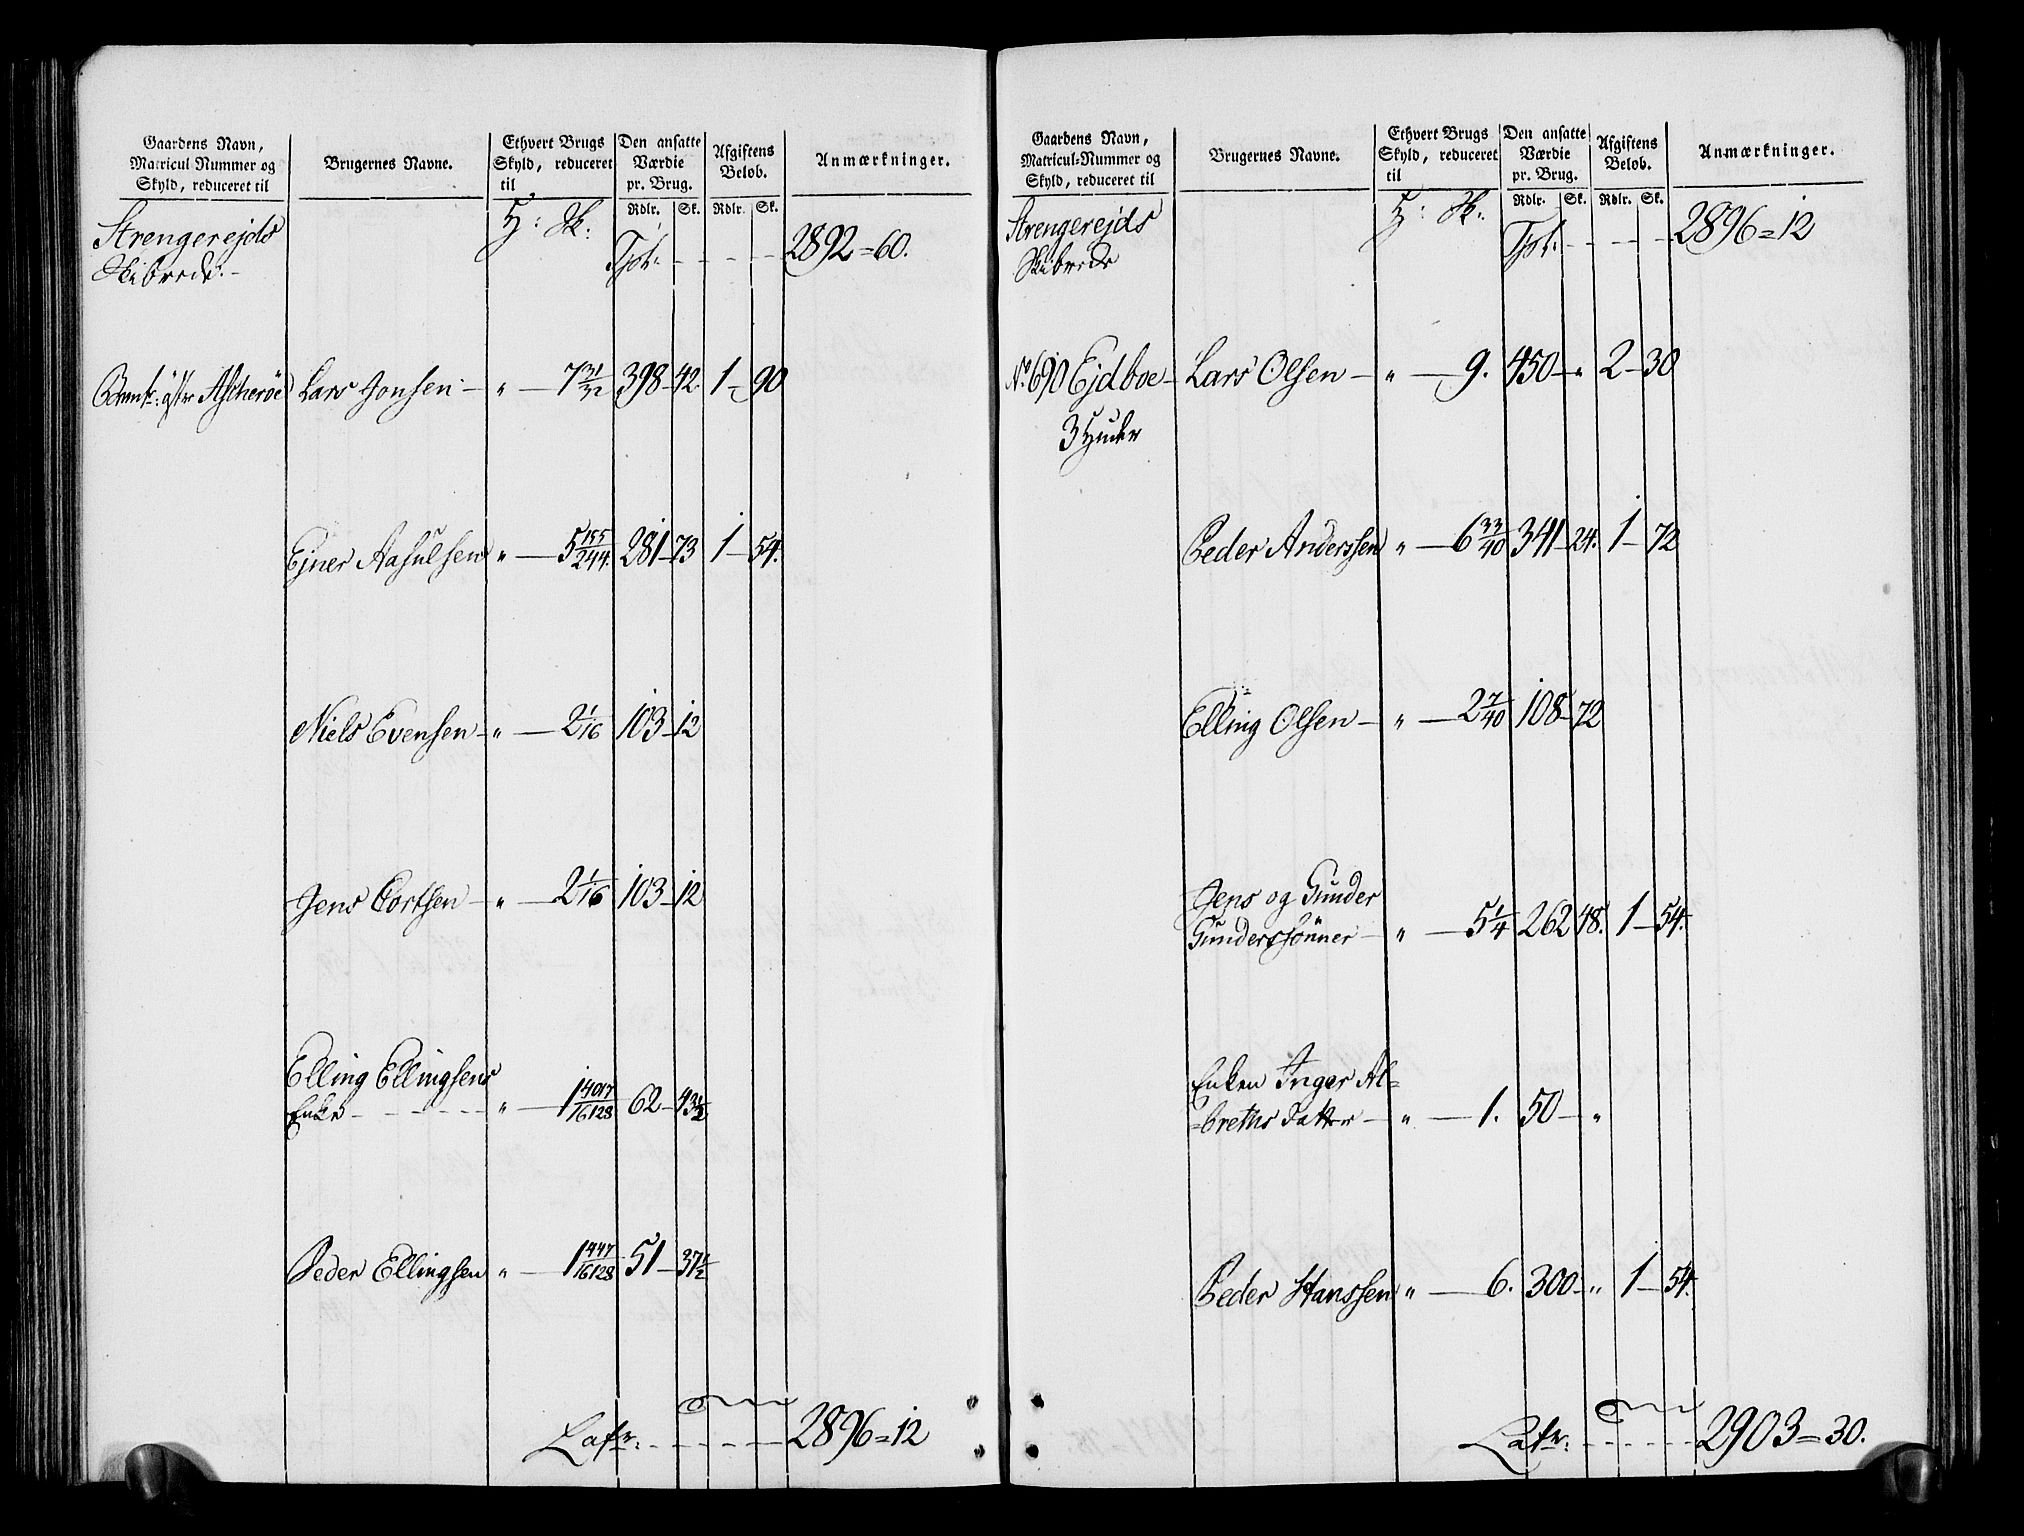 Gaardens Navn,
Matricul Nummer og
Skyld, reduceret til
Brugernes Navne.
Ethvert Brugs
Skyld, reduceret
til
Den ansatte
Værdie
pr. Brug.
Afgiftens
Beløb.
Anmærkninger.
Rdlr. Sk. Rdlr. Sk.
Strengerejds
Skibrede.
H: Sk:
Tpt: 2892=60.
østre Ascherøe Lars Jonsen " 7 31/32 398 42. 1 90
Ejner Aasulsen " 5 155/244. 281 73 1 54.
Niels Evensen " 2 1/16 103 12
Jens Cortsen " 2 1/16 103 12
Elling Ellingsens
Enke " 1 4017/16128 62 43 1/2
Peder Ellingsen " 1 447/16128 51 37 1/2
Latr: 2896=12
Gaardens Navn,
Matricul-Nummer og
Skyld, reduceret til
Brugernes Navne.
Ethvert Brugs
Skyld, reduceret
til
Den ansatte
Værdie
pr. Brug.
Afgiftens
Beløb.
Anmærkninger.
Rdlr. Sk. Rdlr. Sk.
Strengerejds
Skibrede
H: Sk:
Tpt: 2896=12
No. 690 Ejdboe Lars Olsen " 9. 450 " 2 30
3 Huder
Peder Anderssen " 6 33/40 341 24. 1 72
Elling Olsen " 2 7/40 108 72
Jens og Gunder
Gunderssønner " 5 1/4 262 48. 1 54.
Enken Inger Al=
=breths Datter " 1. 50 "
Peder Hanssen " 6. 300 " 1 54.
Latr: 2903=30.